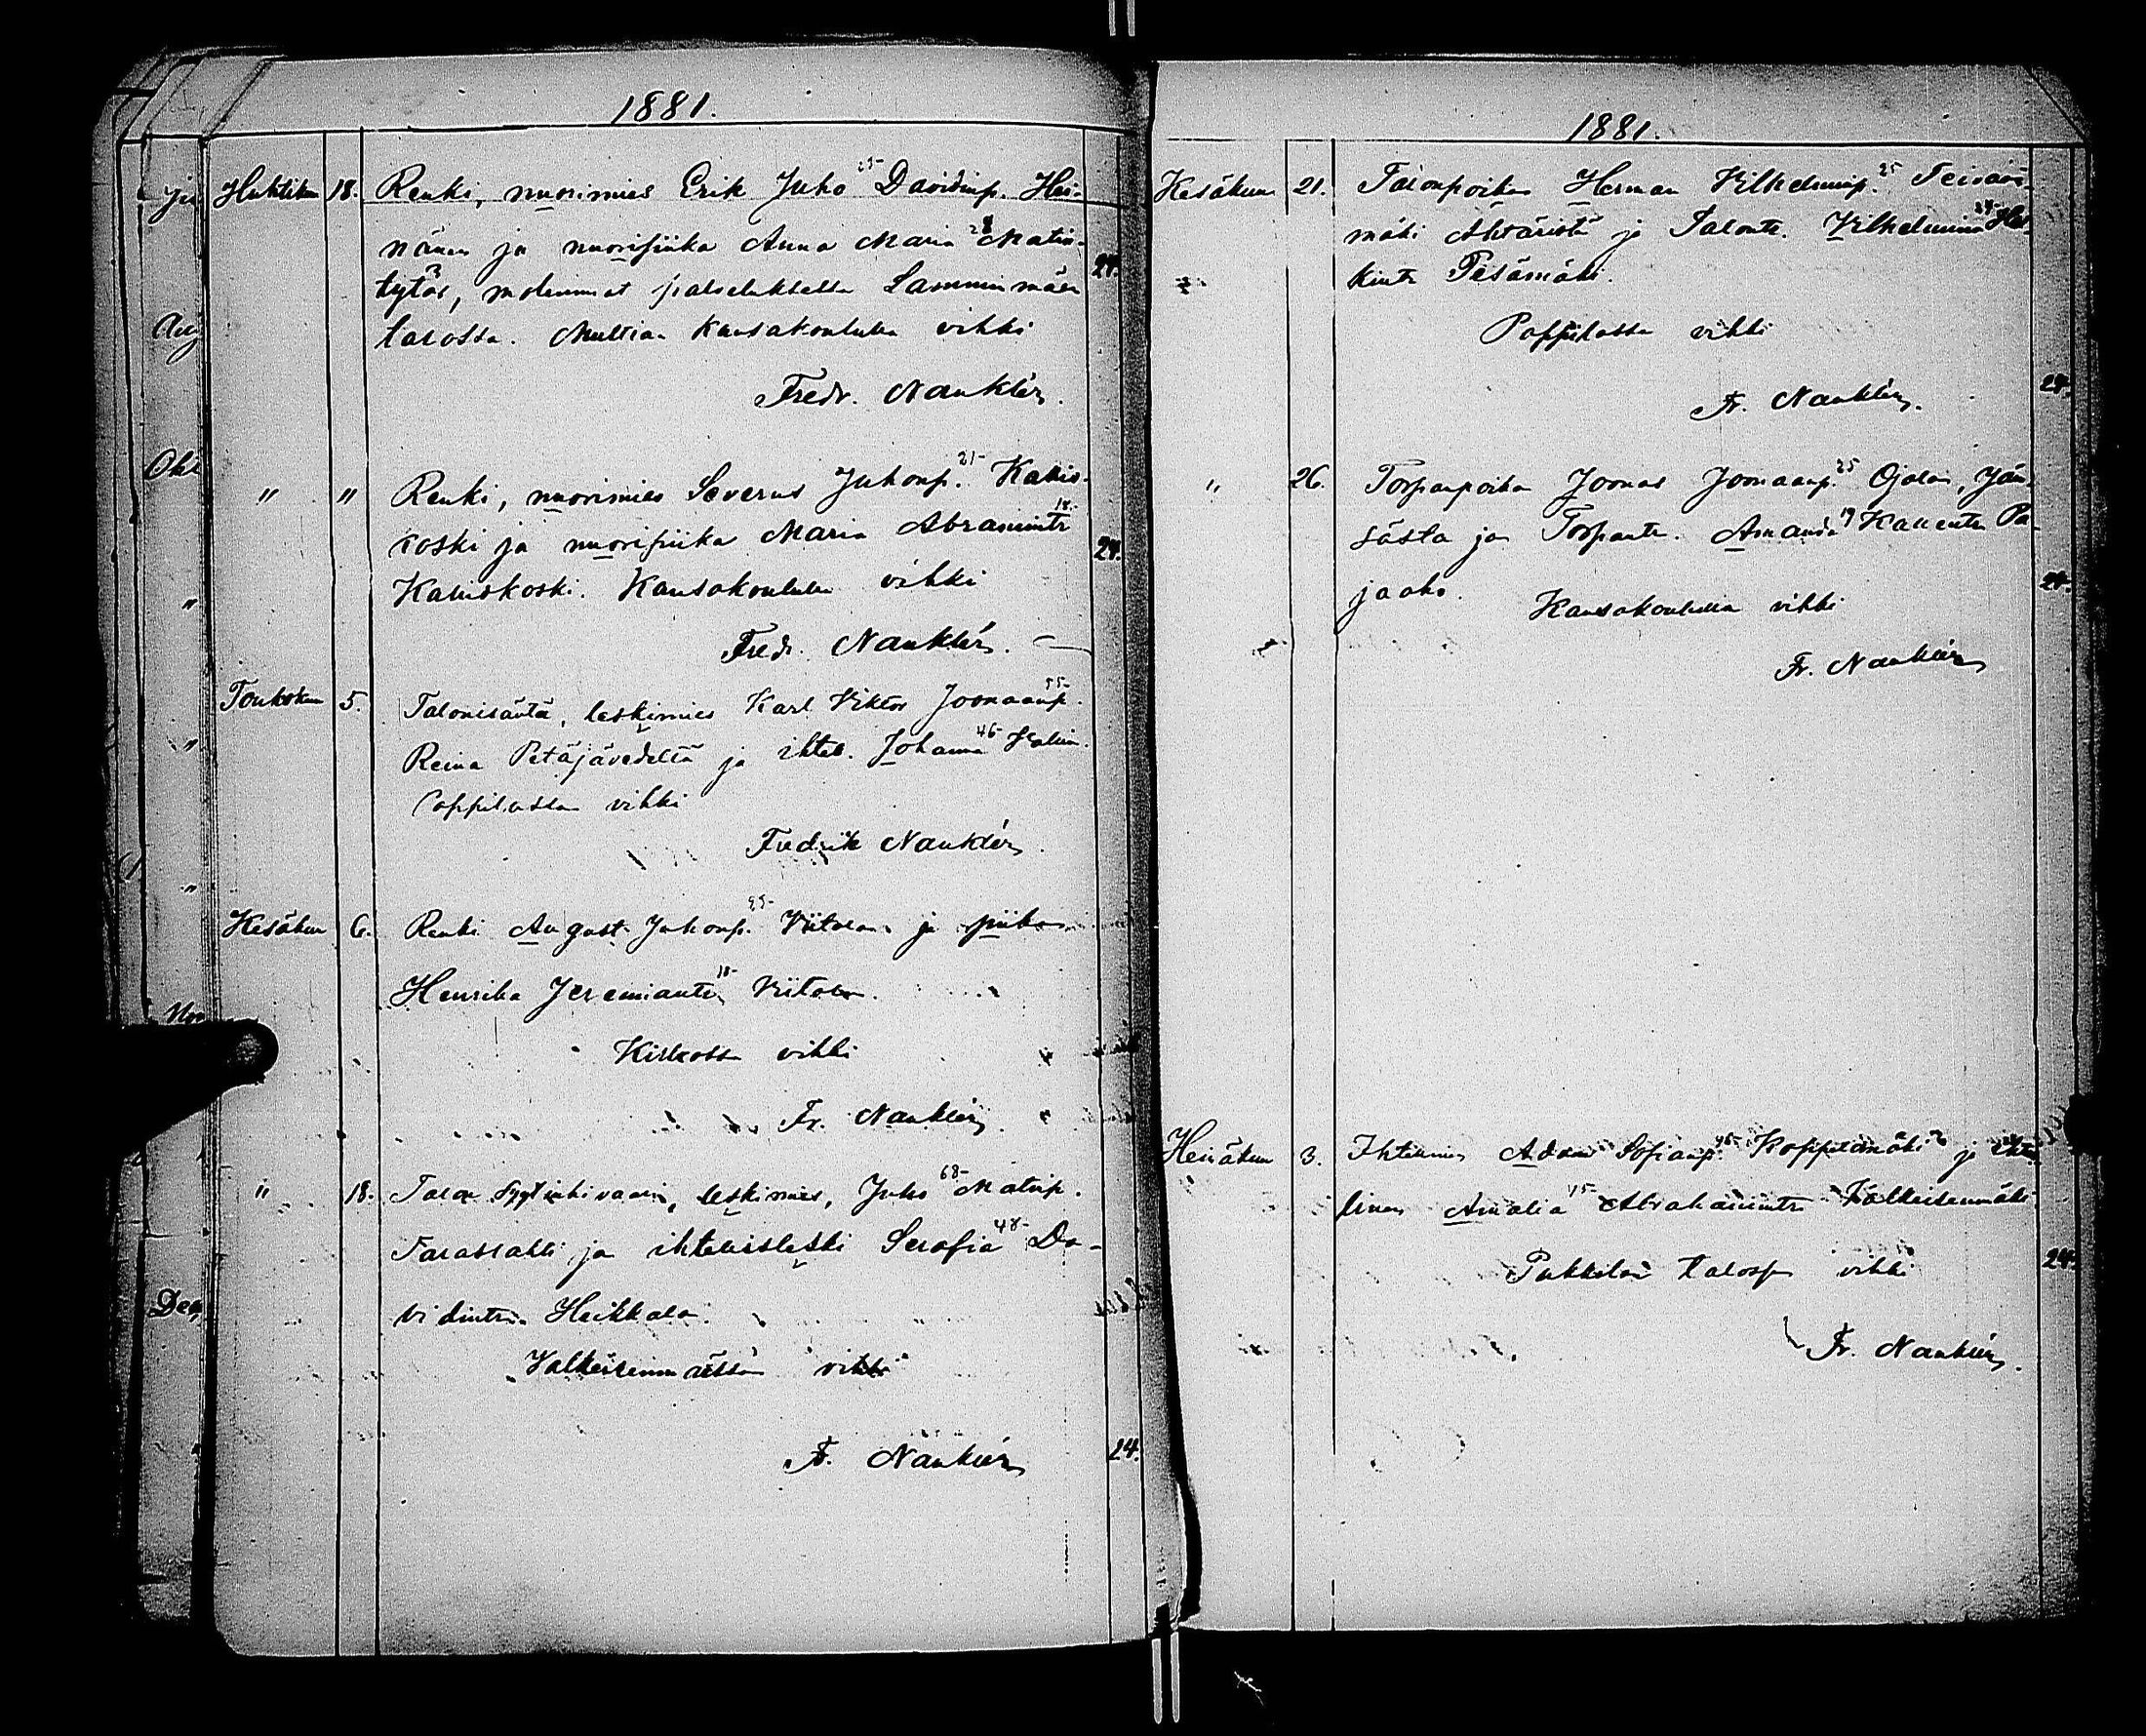 1881.
Huhtikuu 18. Renki, nuorimies Erik Juho Davidinp. Hei-
nänen ja nuoripiika Anna Maria 28 Matin-
tytär, molemmat palveluksella Lamminmäen
talossa. Multian Kansakoululla vihki
24.
Fredr. Nauklér.
" " Renki, nuorimies Severus Juhonp. 21 Kallis-
koski ja nuoripiika Maria Abramintr 18.
Kalliskoski. Kansakoululla vihki
24.
Fredr. Nauklér.
Toukokuu 5. Talonisäntä, leskimies Karl Viktor Joonaanp. 55
Reina Petäjävedeltä ja ihtell. Johanna 46
Pappilassa vihki
Fredrik Nauklér.
Kesäkuu 6. Renki August Juhonp. Viitala ja piika
Henrika Jeremiantr 18 Viitala.
Kirkossa vihki
Fr. Nauklér.
" 18. Talon leskimies, Juho 68 Matinp.
ja ihtellisleski Serafia 48 Da-
vidintr. Heikkala.
Valkeisenmäessä vihki
Fr. Nauklér
24.
1881.
Kesäkuu 21. Talonpoika Herman Vilhelminp. 25
mäki Ähtäristä ja Talontr. Vilhelmina
kintr Pesämäki.
Pappilassa vihki
24.
Fr. Nauklér.
" 26. Torpanpoika Joonas Joonaanp. 25 Ojala, Jäm-
sästä ja Torpantr. Amanda 19 Kallentr Pa-
jaaho. Kansakoululla vihki
24.
Fr. Nauklér
Heinäkuu 3. Ihtellmies Adam Sofianp. Koppelomäki ja ihtel-
linen Amalia Abrahamintr Valkeisenmäki
Pukkilan talossa vihki
24.
Fr. Nauklér.